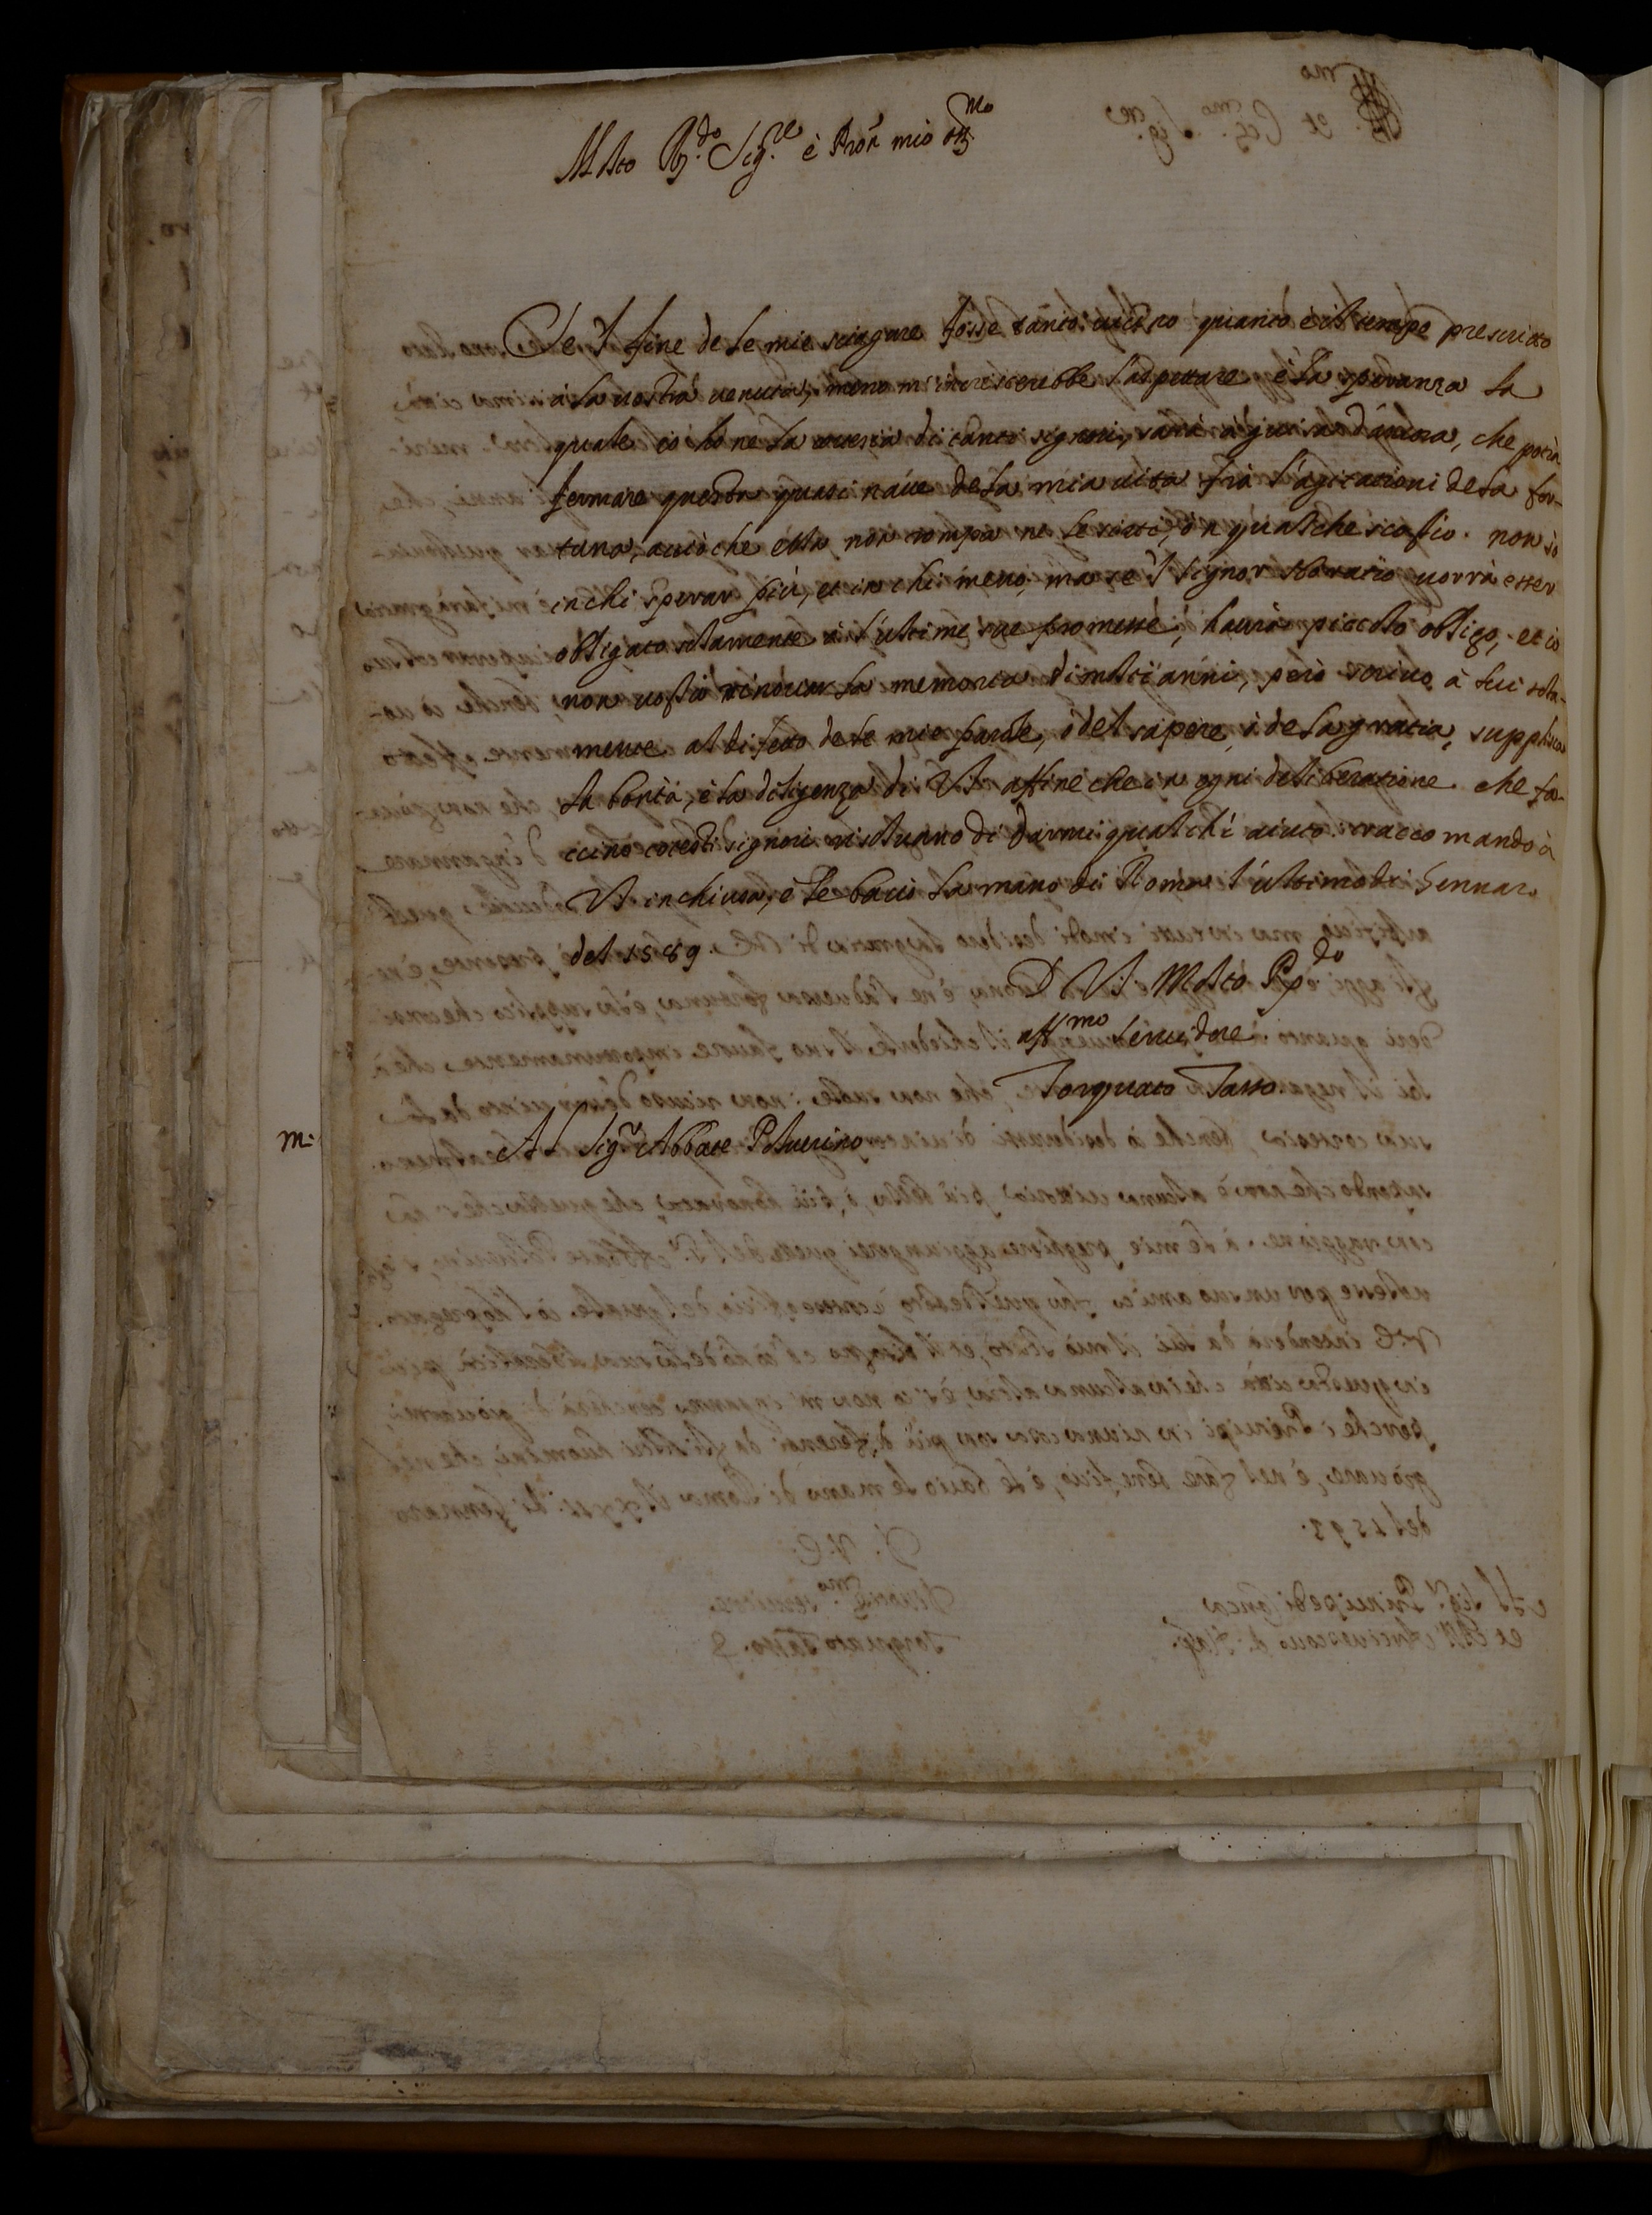 Molto R.do Sig.re è Pron mio oss.mo
Se 'l fine de le mie sciagure fosse tanto vicino quanto è il tempo prescritto
à la vostra venuta, meno m'increscerebbe l'aspettare è la speranza la
quale io hò ne la cortesia di tanti signori, sarà à guisa d'ancora, che potrà
fermare questa quasi nave de la mia vita frà l'agitationi de la for-
tuna, acciò che ella non rompa ne le sirti, ò in qualche scoglio. non sò
in chi sperar più, et in chi meno, ma se 'l signor Horatio vorrà esser
obligato solamente à l'ultime sue promesse, havrà piccolo obligo, et io
non voglio rinovar la memoria di molti anni, però scrivo à lui sola-
mente al difetto de le mie parole, ò del sapere, ò de la gratia, supplisca
la bontà, è la diligenza di V.S. affine che in ogni deliberatione che fa-
ccino cotesti signori risolvano di darmi qualche aiuto. raccomando à
V.S. inchiusa, è le bacio la mano di Roma l'ultimo di Gennaro
del 1589.
D. V.S. Molto R.do
aff.mo servidore
Torquato Tasso
m:
Al Sig.r Abbate Polverino